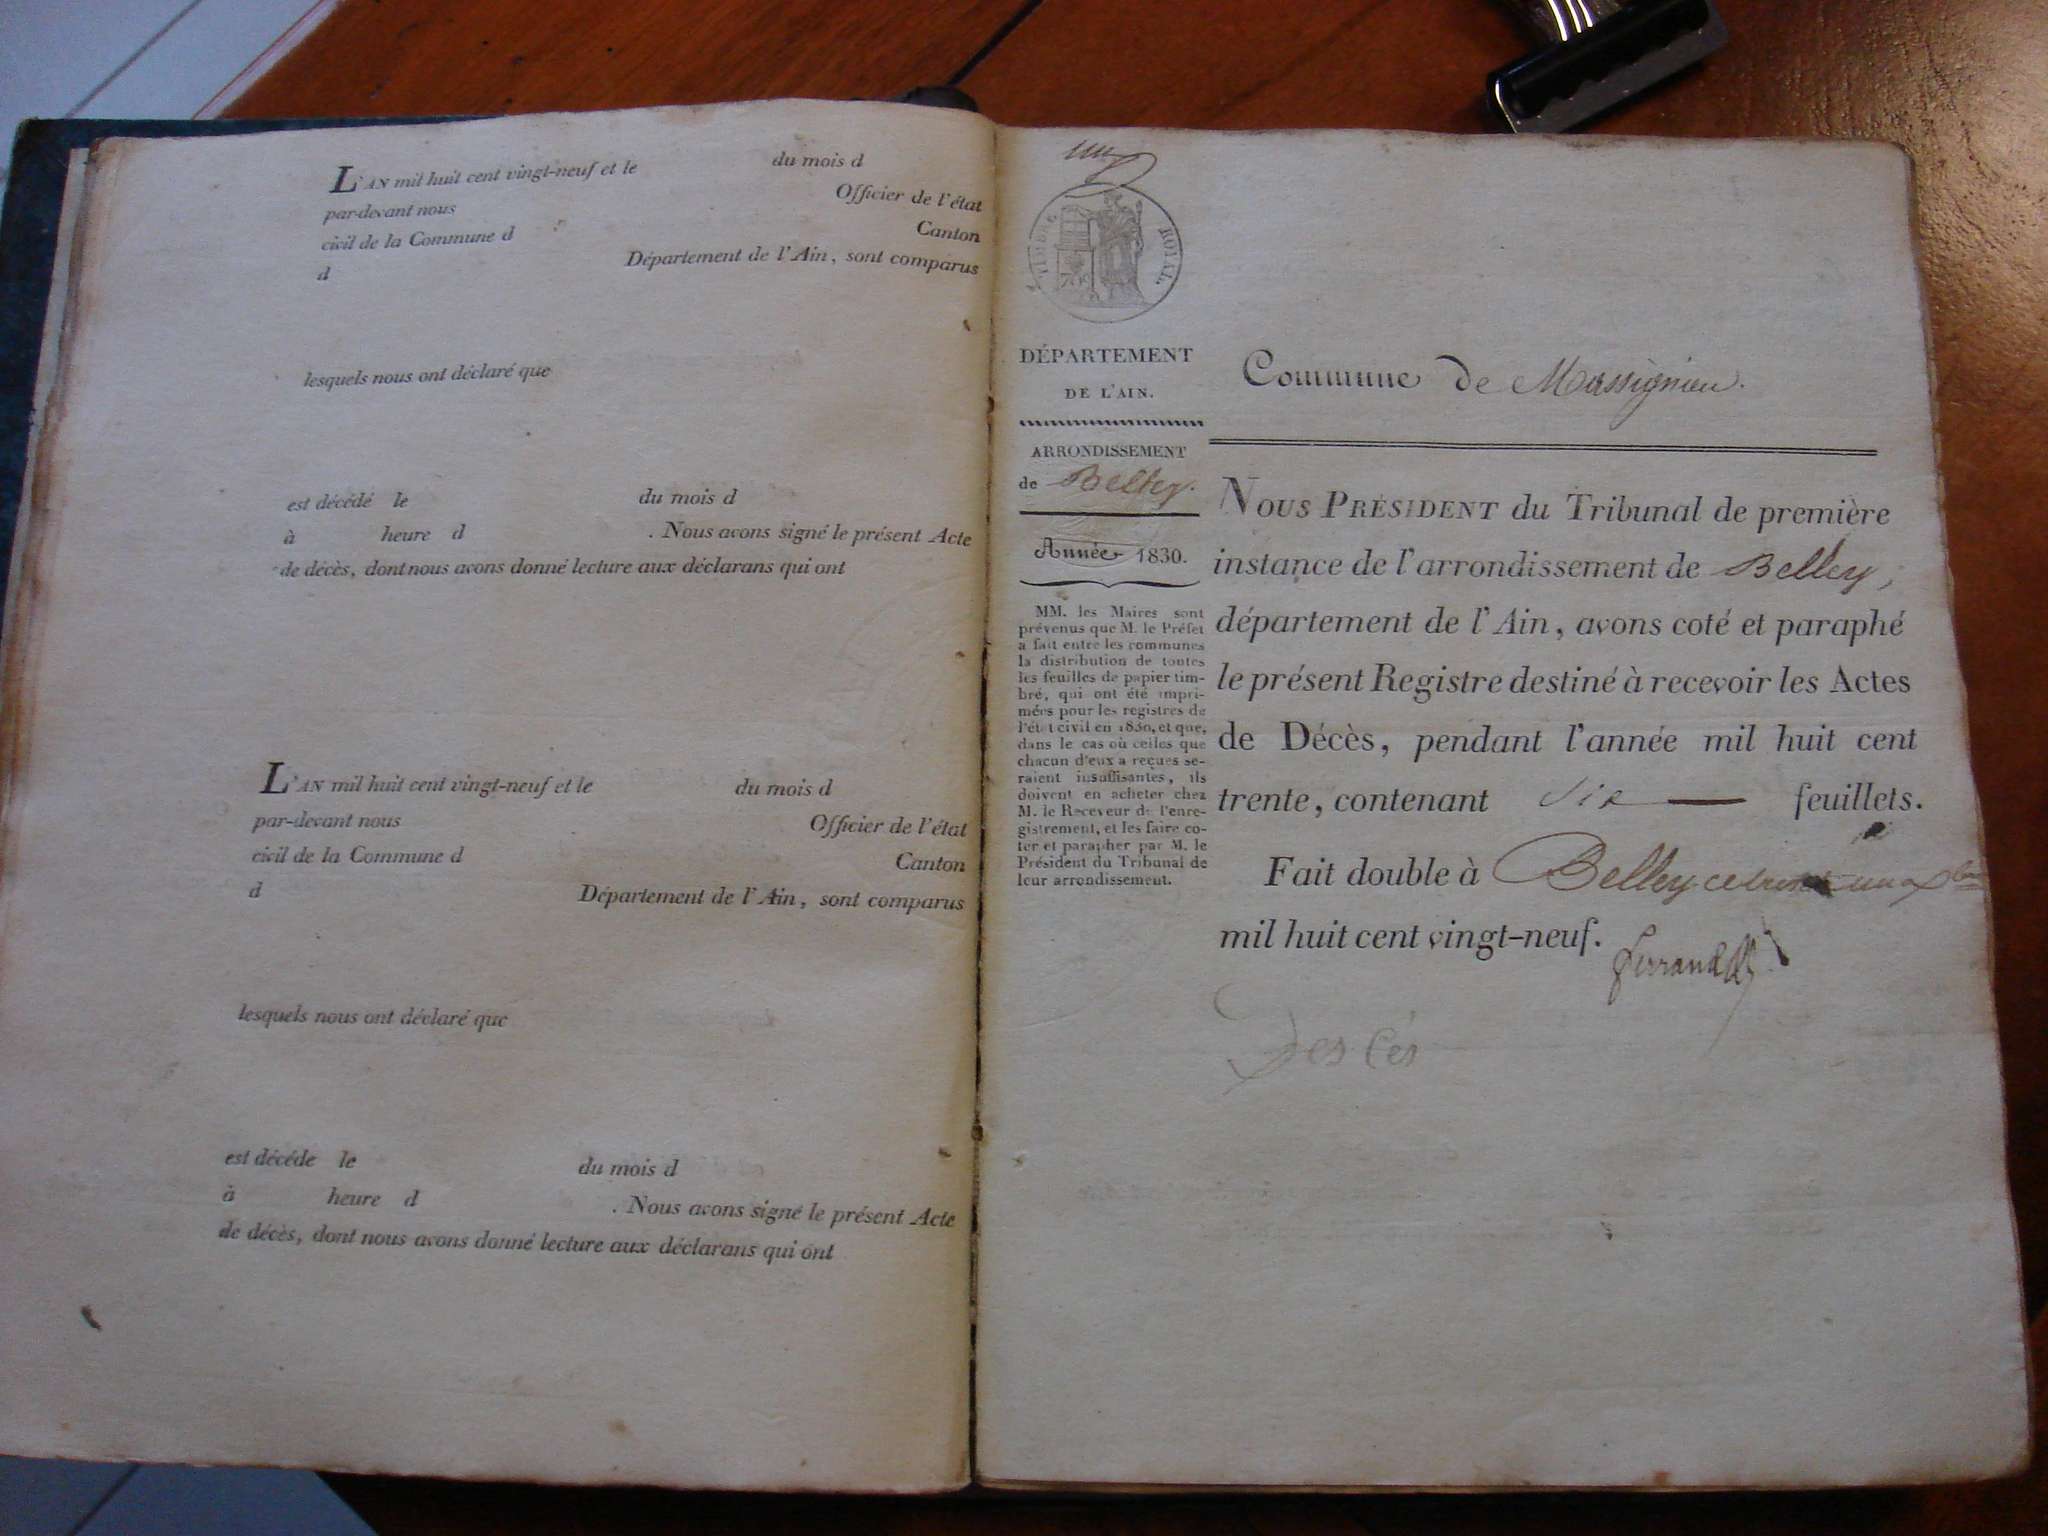 L'AN mil huit cent vingt-neuf et le du mois d
par-devant nous Officier de l'état
civil de la Commune d Canton
d Département de l'Ain, sont comparus
lesquels nous ont déclaré que
est décédé le du mois d
à heure d . Nous avons signé le présent Acte
de décès, dont nous avons donné lecture aux déclarans qui ont
L'AN mil huit cent vingt-neuf et le du mois d
par-devant nous Officier de l'état
civil de la Commune d Canton
d Département de l'Ain, sont comparus
lesquels nous ont déclaré que
est décédé le du mois d
à heure d . Nous avons signé le présent Acte
de décès, dont nous avons donné lecture aux déclarans qui ont
un
TIMBRE ROYAL
DÉPARTEMENT
DE L'AIN.
ARRONDISSEMENT
de Belley.
Année 1830.
MM. les Maires sont
prévenus que M. le Préfet
a fait entre les communes
la distribution de toutes
les feuilles de papier tim-
bré, qui ont été impri-
mées pour les registres de
l'état civil en 1830, et que,
dans le cas où celles que
chacun d'eux a reçues se-
raient insuffisantes, ils
doivent en acheter chez
M. le Receveur de l'enre-
gistrement, et les faire co-
ter et parapher par M. le
Président du Tribunal de
leur arrondissement.
Commune de Massignieu.
NOUS PRÉSIDENT du Tribunal de première
instance de l'arrondissement de Belley,
département de l'Ain, avons coté et paraphé
le présent Registre destiné à recevoir les Actes
de Décès, pendant l'année mil huit cent
trente, contenant six feuillets.
Fait double à Belley ce trente un Xbre
mil huit cent vingt-neuf.
Des Cés